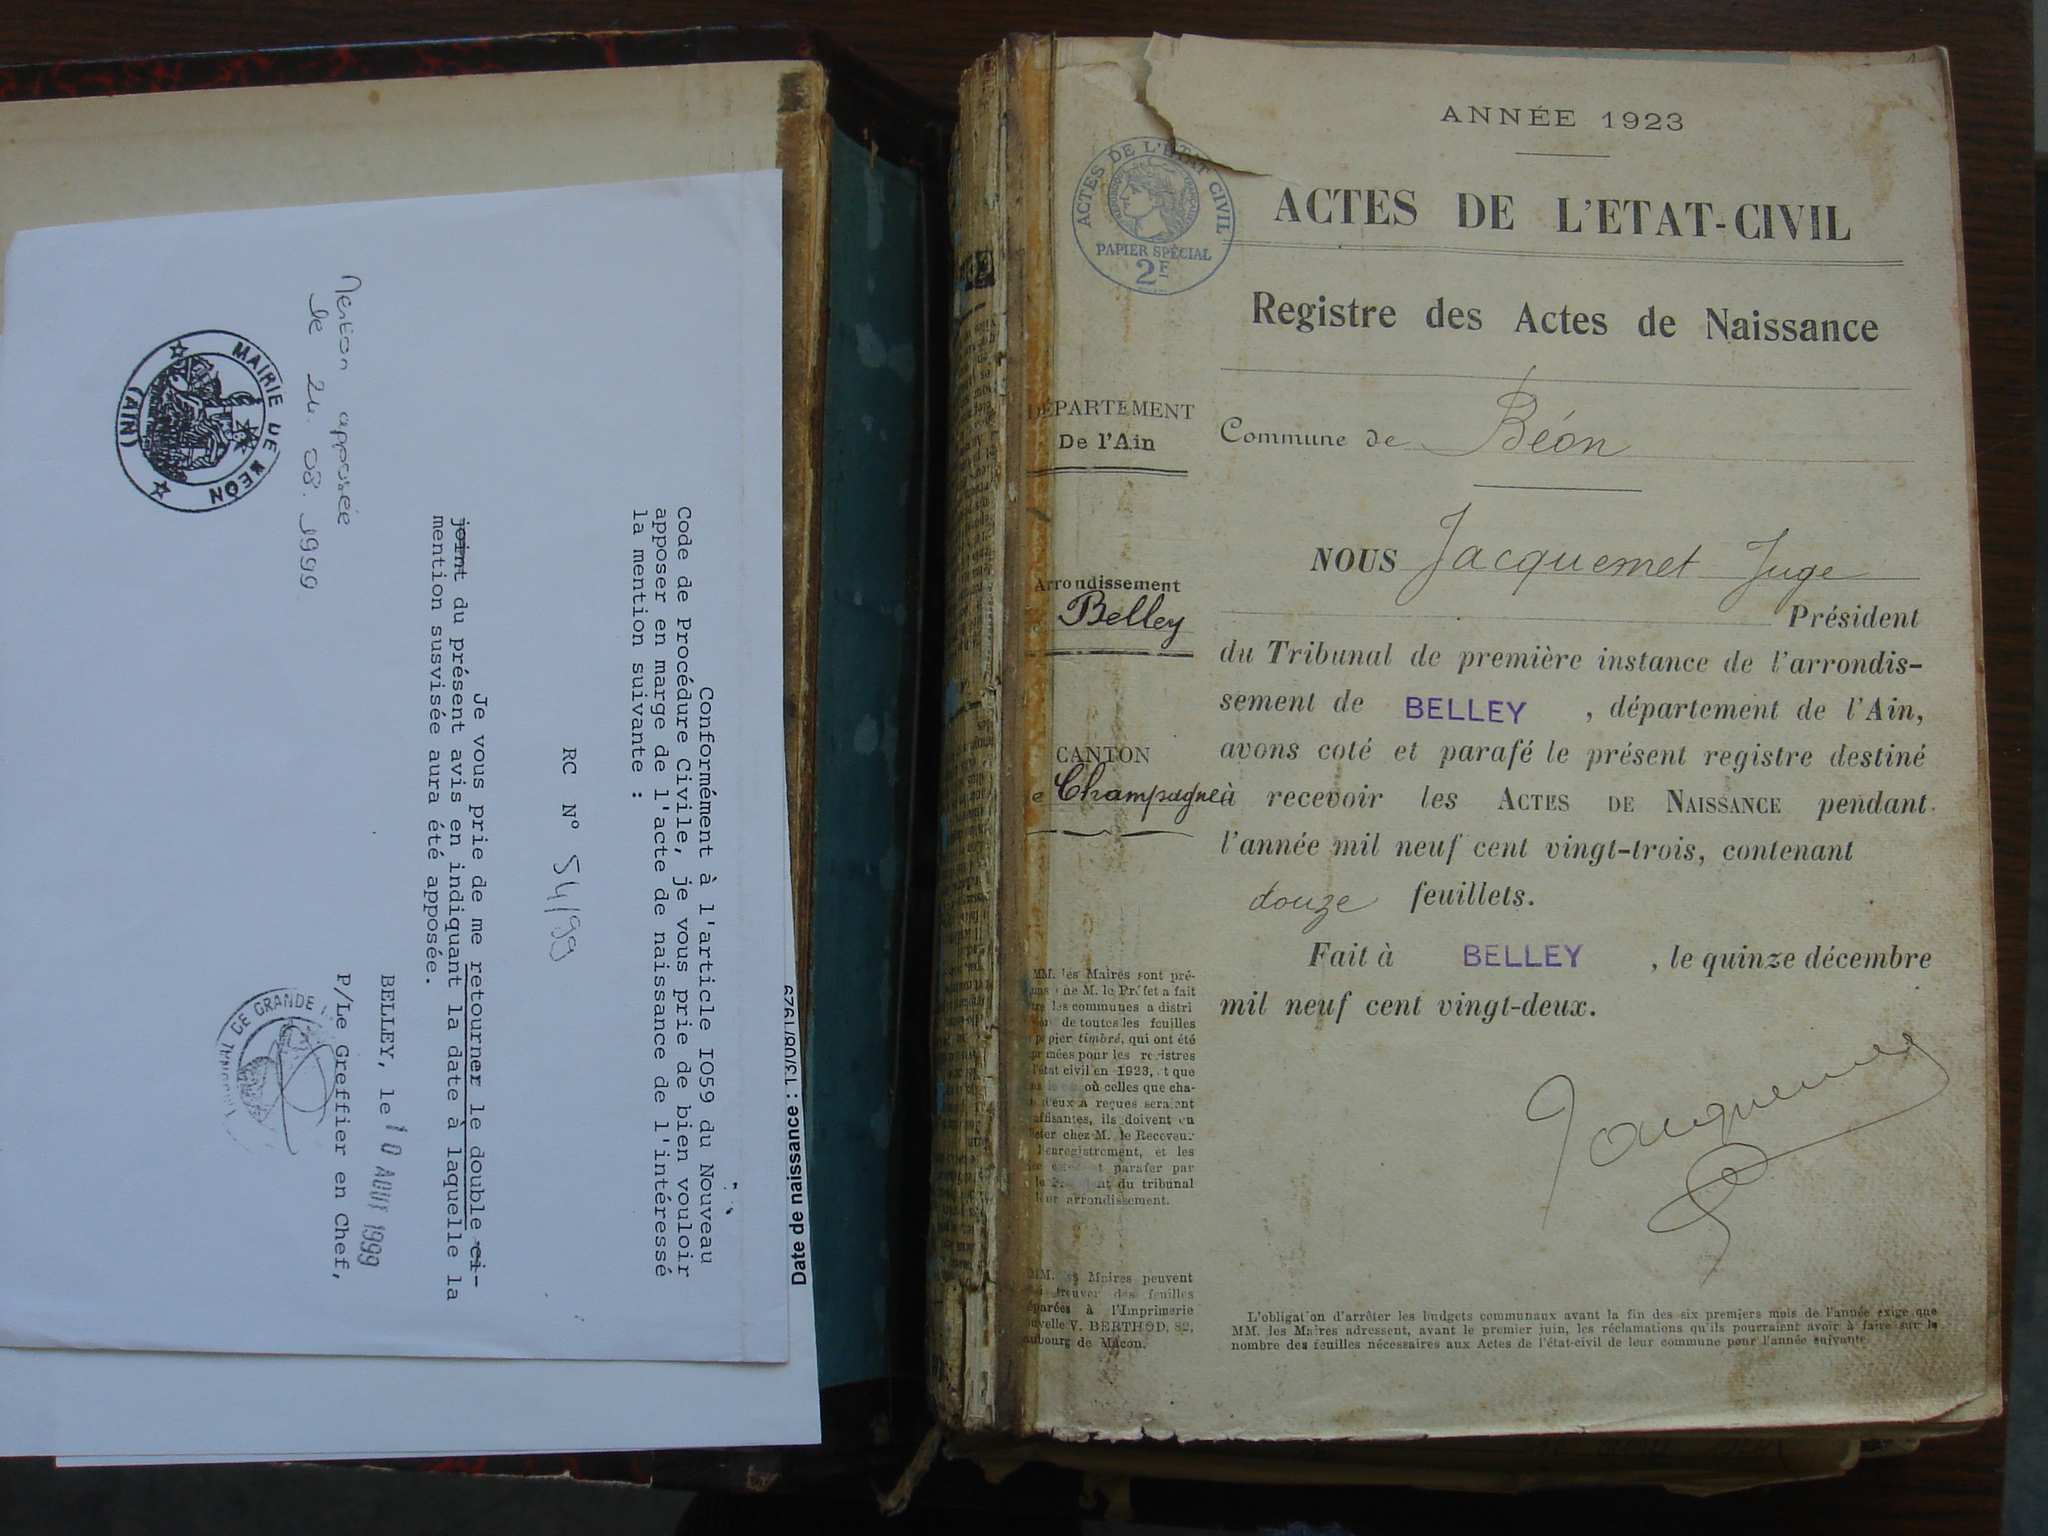 Date de naissance :
Conformément à l'article 1059 du Nouveau
Code de Procédure Civile, je vous prie de bien vouloir
apposer en marge de l'acte de naissance de l'intéressé
la mention suivante :
RC N° 54/99
Je vous prie de me retourner le double ci-
joint du présent avis en indiquant la date à laquelle la
mention susvisée aura été apposée.
BELLEY, le 10 AOUT 1999
P/Le Greffier en Chef,
DE GRANDE
TRIBUNAL
Mention apposée
le 24.08.1999
MAIRIE DE BEON
(AIN)
ANNÉE 1923
ACTES DE L'ETAT CIVIL
PAPIER SPÉCIAL
2F
ACTES DE L'ETAT-CIVIL
Registre des Actes de Naissance
DÉPARTEMENT
De l'Ain
Commune de Béon
Arrondissement
Belley
CANTON
Champagne
NOUS Jacquemet Juge
Président
du Tribunal de première instance de l'arrondis-
sement de BELLEY , département de l'Ain,
avons coté et parafé le présent registre destiné
à recevoir les ACTES DE NAISSANCE pendant
l'année mil neuf cent vingt-trois, contenant
douze feuillets.
Fait à BELLEY , le quinze décembre
mil neuf cent vingt-deux.
Jacquemet
MM. les Maires sont pré-
que M. le Préfet a fait
les communes a distri
de toutes les feuilles
papier timbré, qui ont été
pour les registres
l'état civil en 1923, et que
où celles que cha-
d'eux a reçues seraient
ils doivent en
chez M. le Receveur
l'enregistrement, et les
et parafer par
du tribunal
leur arrondissement.
MM. les Maires peuvent
trouver des feuilles
à l'Imprimerie
V. BERTHOD, 82,
de Mâcon.
L'obligation d'arrêter les budgets communaux avant la fin des six premiers mois de l'année exige que
MM. les Maires adressent, avant le premier juin, les réclamations qu'ils pourraient avoir à faire sur le
nombre des feuilles nécessaires aux Actes de l'état-civil de leur commune pour l'année suivante.